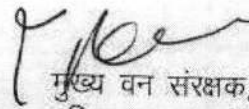 मुख्य वन संरक्षक